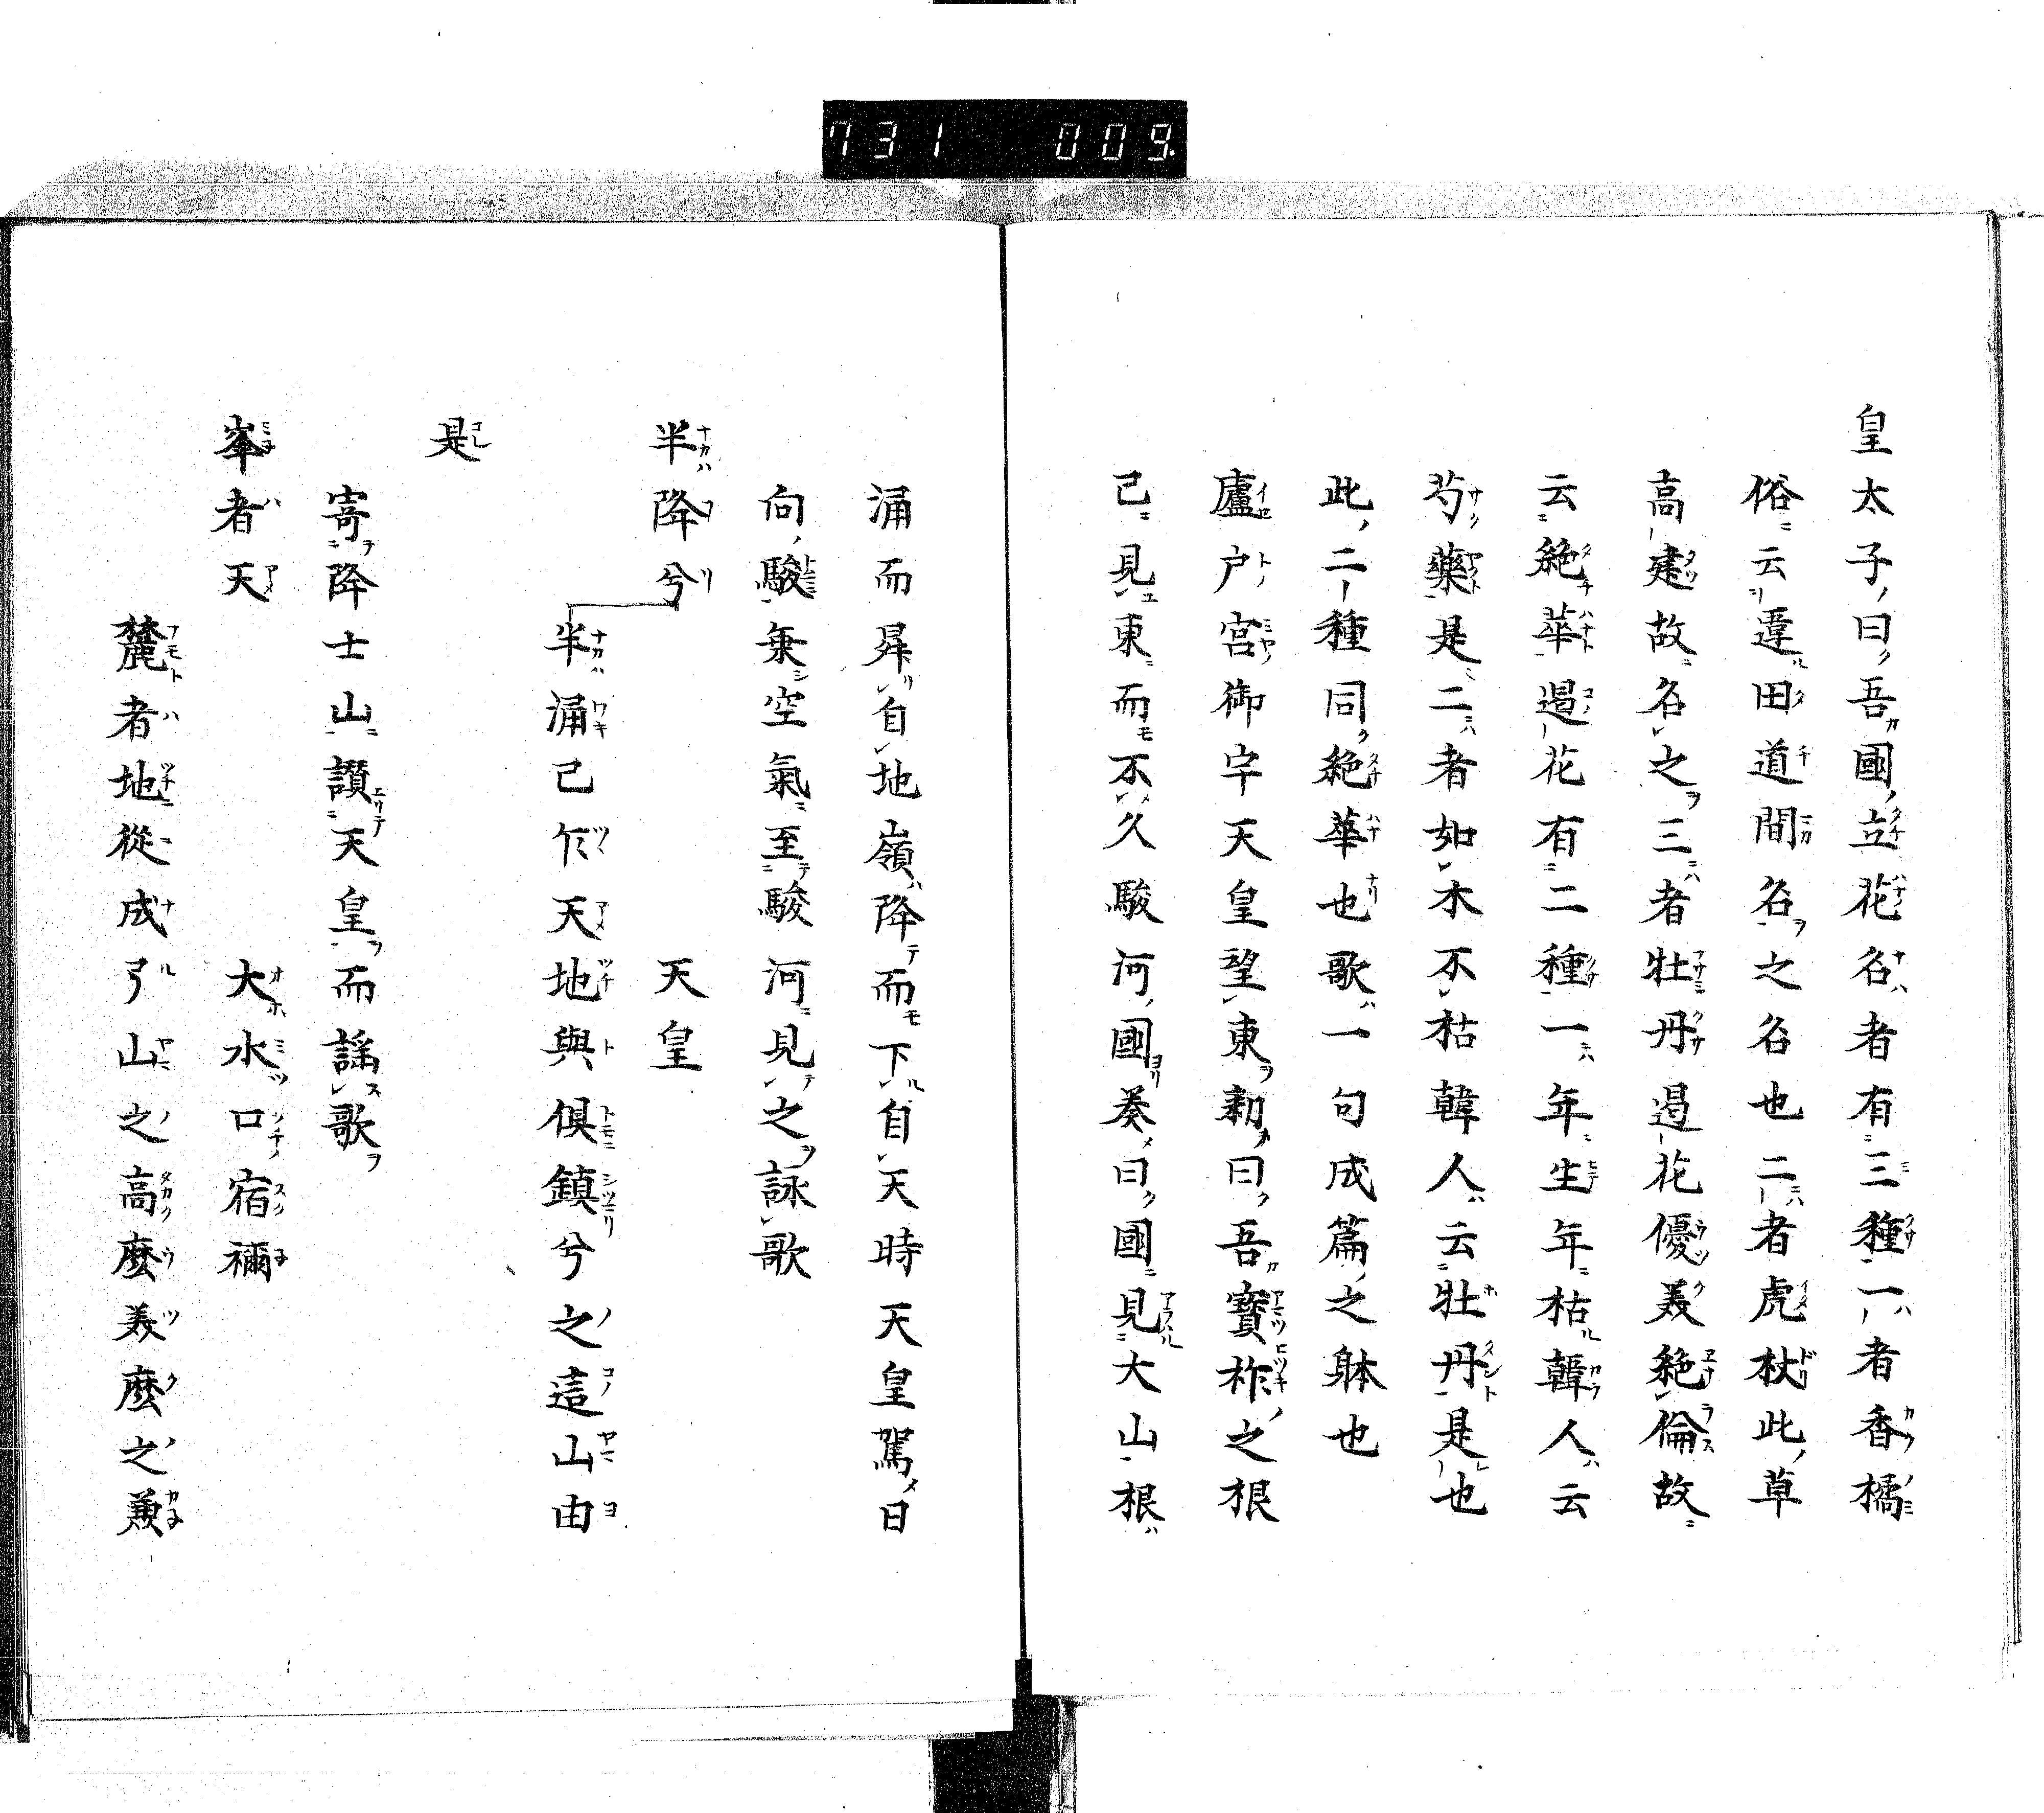 731 009
皇太子曰吾國立花名者有三種一者香橘
俗云違田道間名之名也二者虎杖此草
高建故名之三者牡丹過花優美絶倫故
云絶華過花有二種一年生年枯韓人云
芍藥是二者如木不枯韓人云牡丹是也
此二種同絶華也歌一句成篇之躰也
廬戸宮御宇天皇望東勅曰吾寳祚之根
己見東而不久駿河國奏曰國見大山根
涌而昇自地嶺降而下自天時天皇駕日
向駿乗空氣至駿河見之詠歌
半降兮 天皇
半涌己乍天地與倶鎮兮之這山由
是
寄降士山讃天皇而謡歌
峯者天 大水口宿禰
麓者地從成弖山之高麽美麽之兼